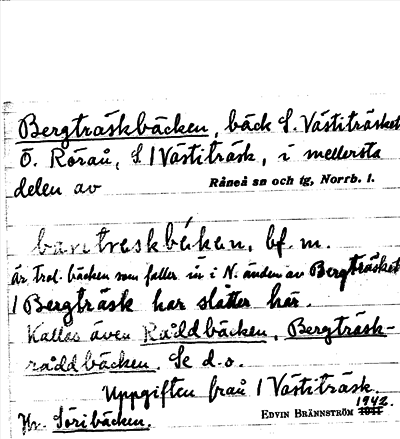 Bergträskbäcken, bäck S. Västiträsket
Ö. Rörån, S / Västiträsk, i mellersta
delen av Råneå sn och tg, Norrb. l.
bäcken, bf. m.
är trol. bäcken som faller in i N. änden av Bergträsket
/ Bergträsk har slåtter här.
Kallas även Råddbäcken, Bergträsk-
råddbäcken. Se d.o.
Uppgiften från / Västiträsk.
Edvin Brännström 1942.
Hr. Söribäcken.